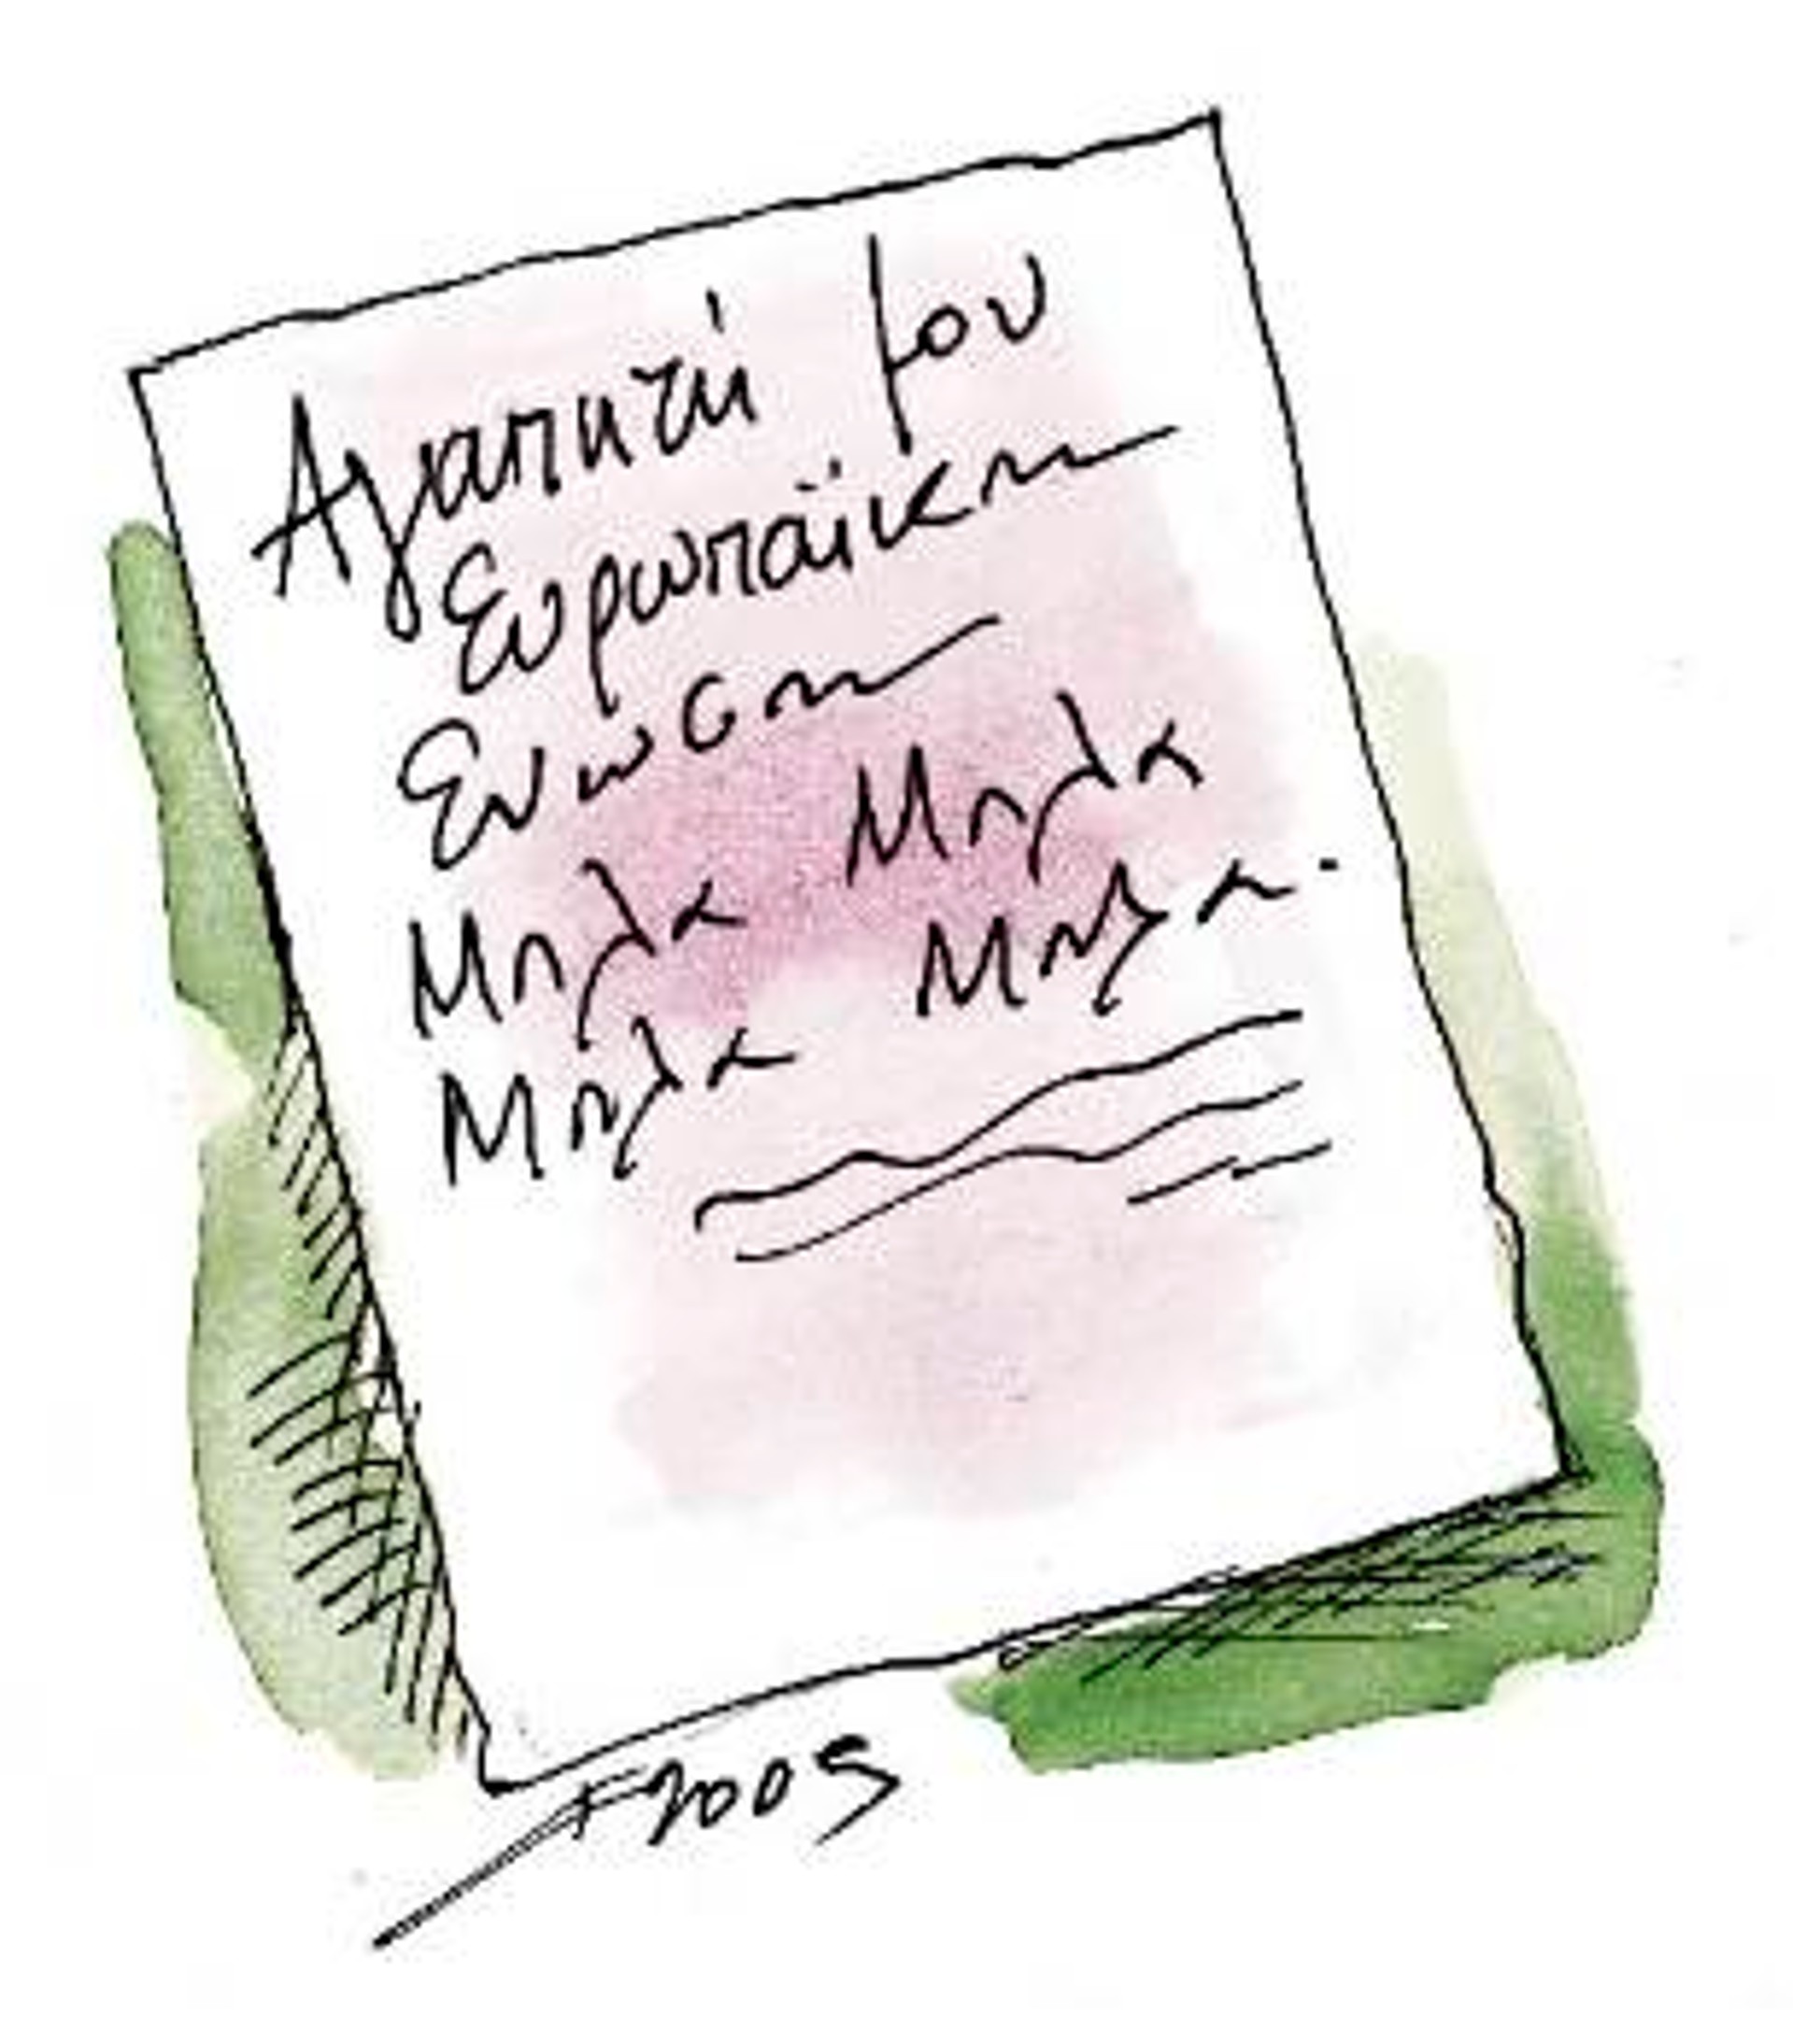 Αγαπητή μου
Ευρωπαϊκη
Ενωση
Μπλα Μπλα
Μπλα Μπλα.
2005